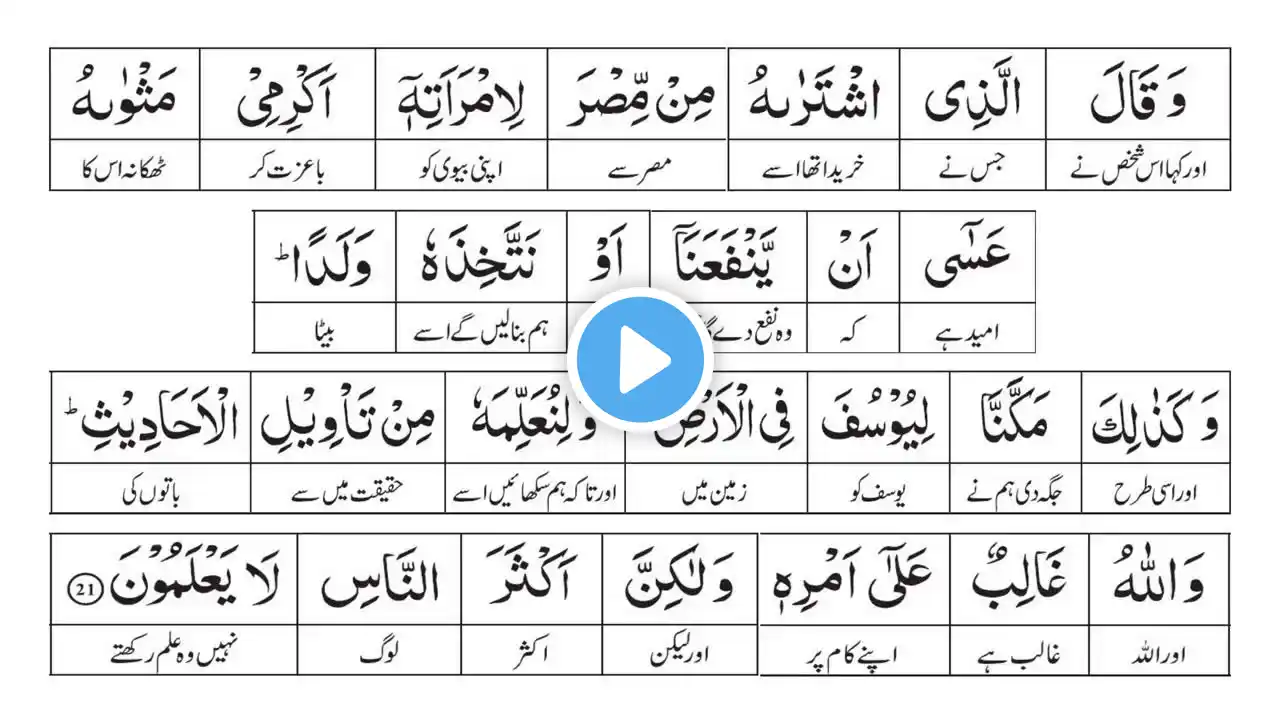 وَ قَالَ الَّذِى اشْتَرٰىهُ مِنْ مِّصْرَ لِامْرَاَتِهٖۤ اَكْرِمِىْ مَثْوٰىهُ
اور کہا اس شخص نے جس نے خریدا تھا اسے مصر سے اپنی بیوی کو باعزت کر ٹھکانہ اس کا
عَسٰۤى اَنْ يَّنْفَعَنَاۤ اَوْ نَتَّخِذَهٗ وَلَدًا ؕ
امید ہے کہ وہ نفع دے ہم بنالیں گے اسے بیٹا
وَ كَذٰلِكَ مَكَّنَّا لِيُوْسُفَ فِى الْاَرْضِ وَلِنُعَلِّمَهٗ مِنْ تَاْوِيْلِ الْاَحَادِيْثِ ؕ
اور اسی طرح جگہ دی ہم نے یوسف کو زمین میں اور تاکہ ہم سکھائیں اسے حقیقت میں سے باتوں کی
وَ اللّٰهُ غَالِبٌ عَلٰۤى اَمْرِهٖ وَلٰكِنَّ اَكْثَرَ النَّاسِ لَا يَعْلَمُوْنَ 21
اور اللہ غالب ہے اپنے کام پر اور لیکن اکثر لوگ نہیں وہ علم رکھتے